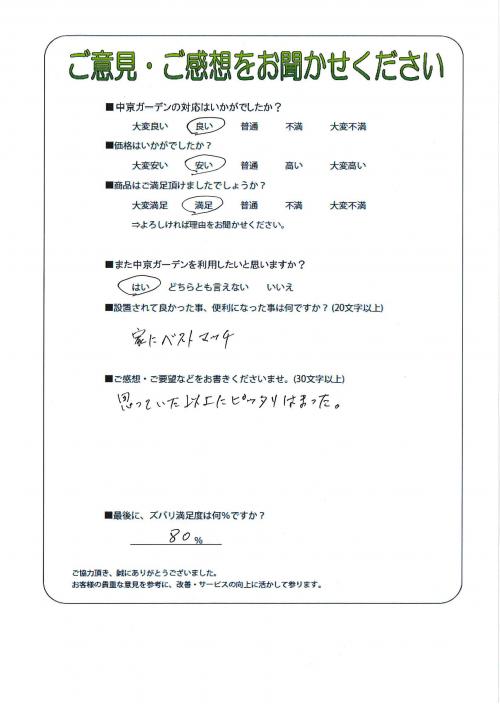 ご意見・ご感想をお聞かせください
■中京ガーデンの対応はいかがでしたか？
大変良い 良い 普通 不満 大変不満
■価格はいかがでしたか？
大変安い 安い 普通 高い 大変高い
■商品はご満足頂けましたでしょうか？
大変満足 満足 普通 不満 大変不満
⇒よろしければ理由をお聞かせください。
■また中京ガーデンを利用したいと思いますか？
はい どちらとも言えない いいえ
■設置されて良かった事、便利になった事は何ですか？(20文字以上)
家にベストマッチ
■ご感想・ご要望などをお書きくださいませ。(30文字以上)
思っていた以上にピッタリはまった。
■最後に、ズバリ満足度は何％ですか？
80％
ご協力頂き、誠にありがとうございました。
お客様の貴重な意見を参考に、改善・サービスの向上に活かして参ります。